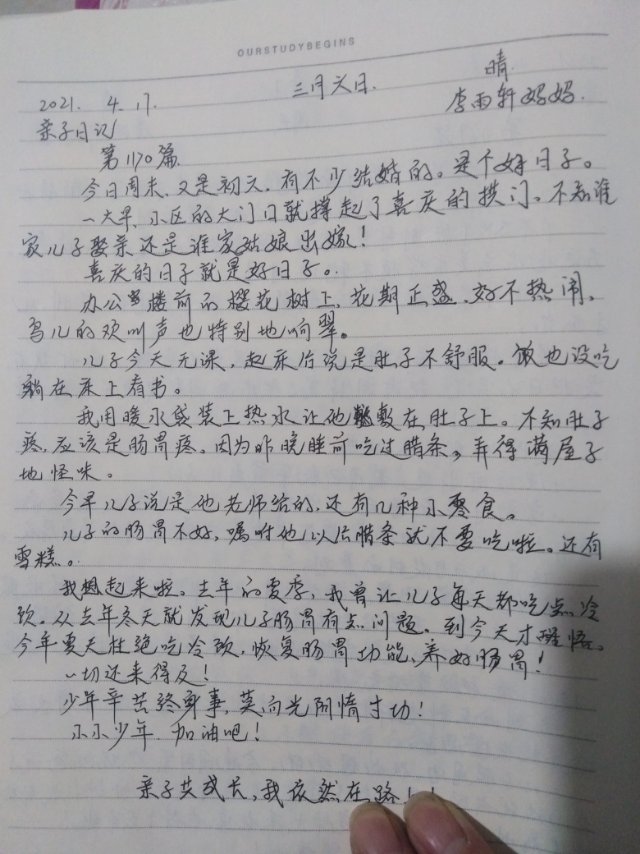 OURSTUDYBEGINS
2021. 4. 17. 三月六日. 晴.
亲子日记 李雨轩妈妈.
第1170篇.
今日周末,又是初六,有不少结婚的。是个好日子。
一大早,小区的大门口就撑起了喜庆的拱门。不知谁
家儿子娶亲还是谁家姑娘出嫁!
喜庆的日子就是好日子。
办公楼前的樱花树上,花期正盛,好不热闹。
鸟儿的欢叫声也特别地响翠。
儿子今天无课,起床后说是肚子不舒服。饭也没吃
躺在床上看书。
我用暖水袋装上热水让他敷在肚子上。不知肚子
疼,应该是肠胃疼。因为昨晚睡前吃过腊条,弄得满屋子
地怪味。
今早儿子说是他老师给的,还有几种小零食。
儿子的肠胃不好,嘱咐他以后腊条就不要吃啦。还有
雪糕。
我想起来啦。去年的夏季,我曾让儿子每天都吃点冷
饮。从去年冬天就发现儿子肠胃有点问题。到今天才醒悟。
今年夏天杜绝吃冷饮,恢复肠胃功能,养好肠胃!
一切还来得及!
少年辛苦终身事,莫向光阴惰寸功!
小小少年,加油吧!
亲子共成长,我依然在路上!